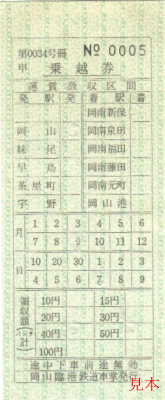 第0034号冊 No 0005
甲 乗越券
運賃取収区間
発駅 発着 駅着
岡南新保
岡山 岡南泉田
妹尾 岡南福田
早島 岡南藤田
茶屋町 岡南元町
宇野 岡山港
月 1 2 3 4 5 6
7 8 9 10 11 12
日 10 20 30 1 2 3
4 5 6 7 8 9
領収額(計) 10円 15円
20円 30円
40円 50円
100円
途中下車前途無効
岡山臨港鉄道車掌発行
見本